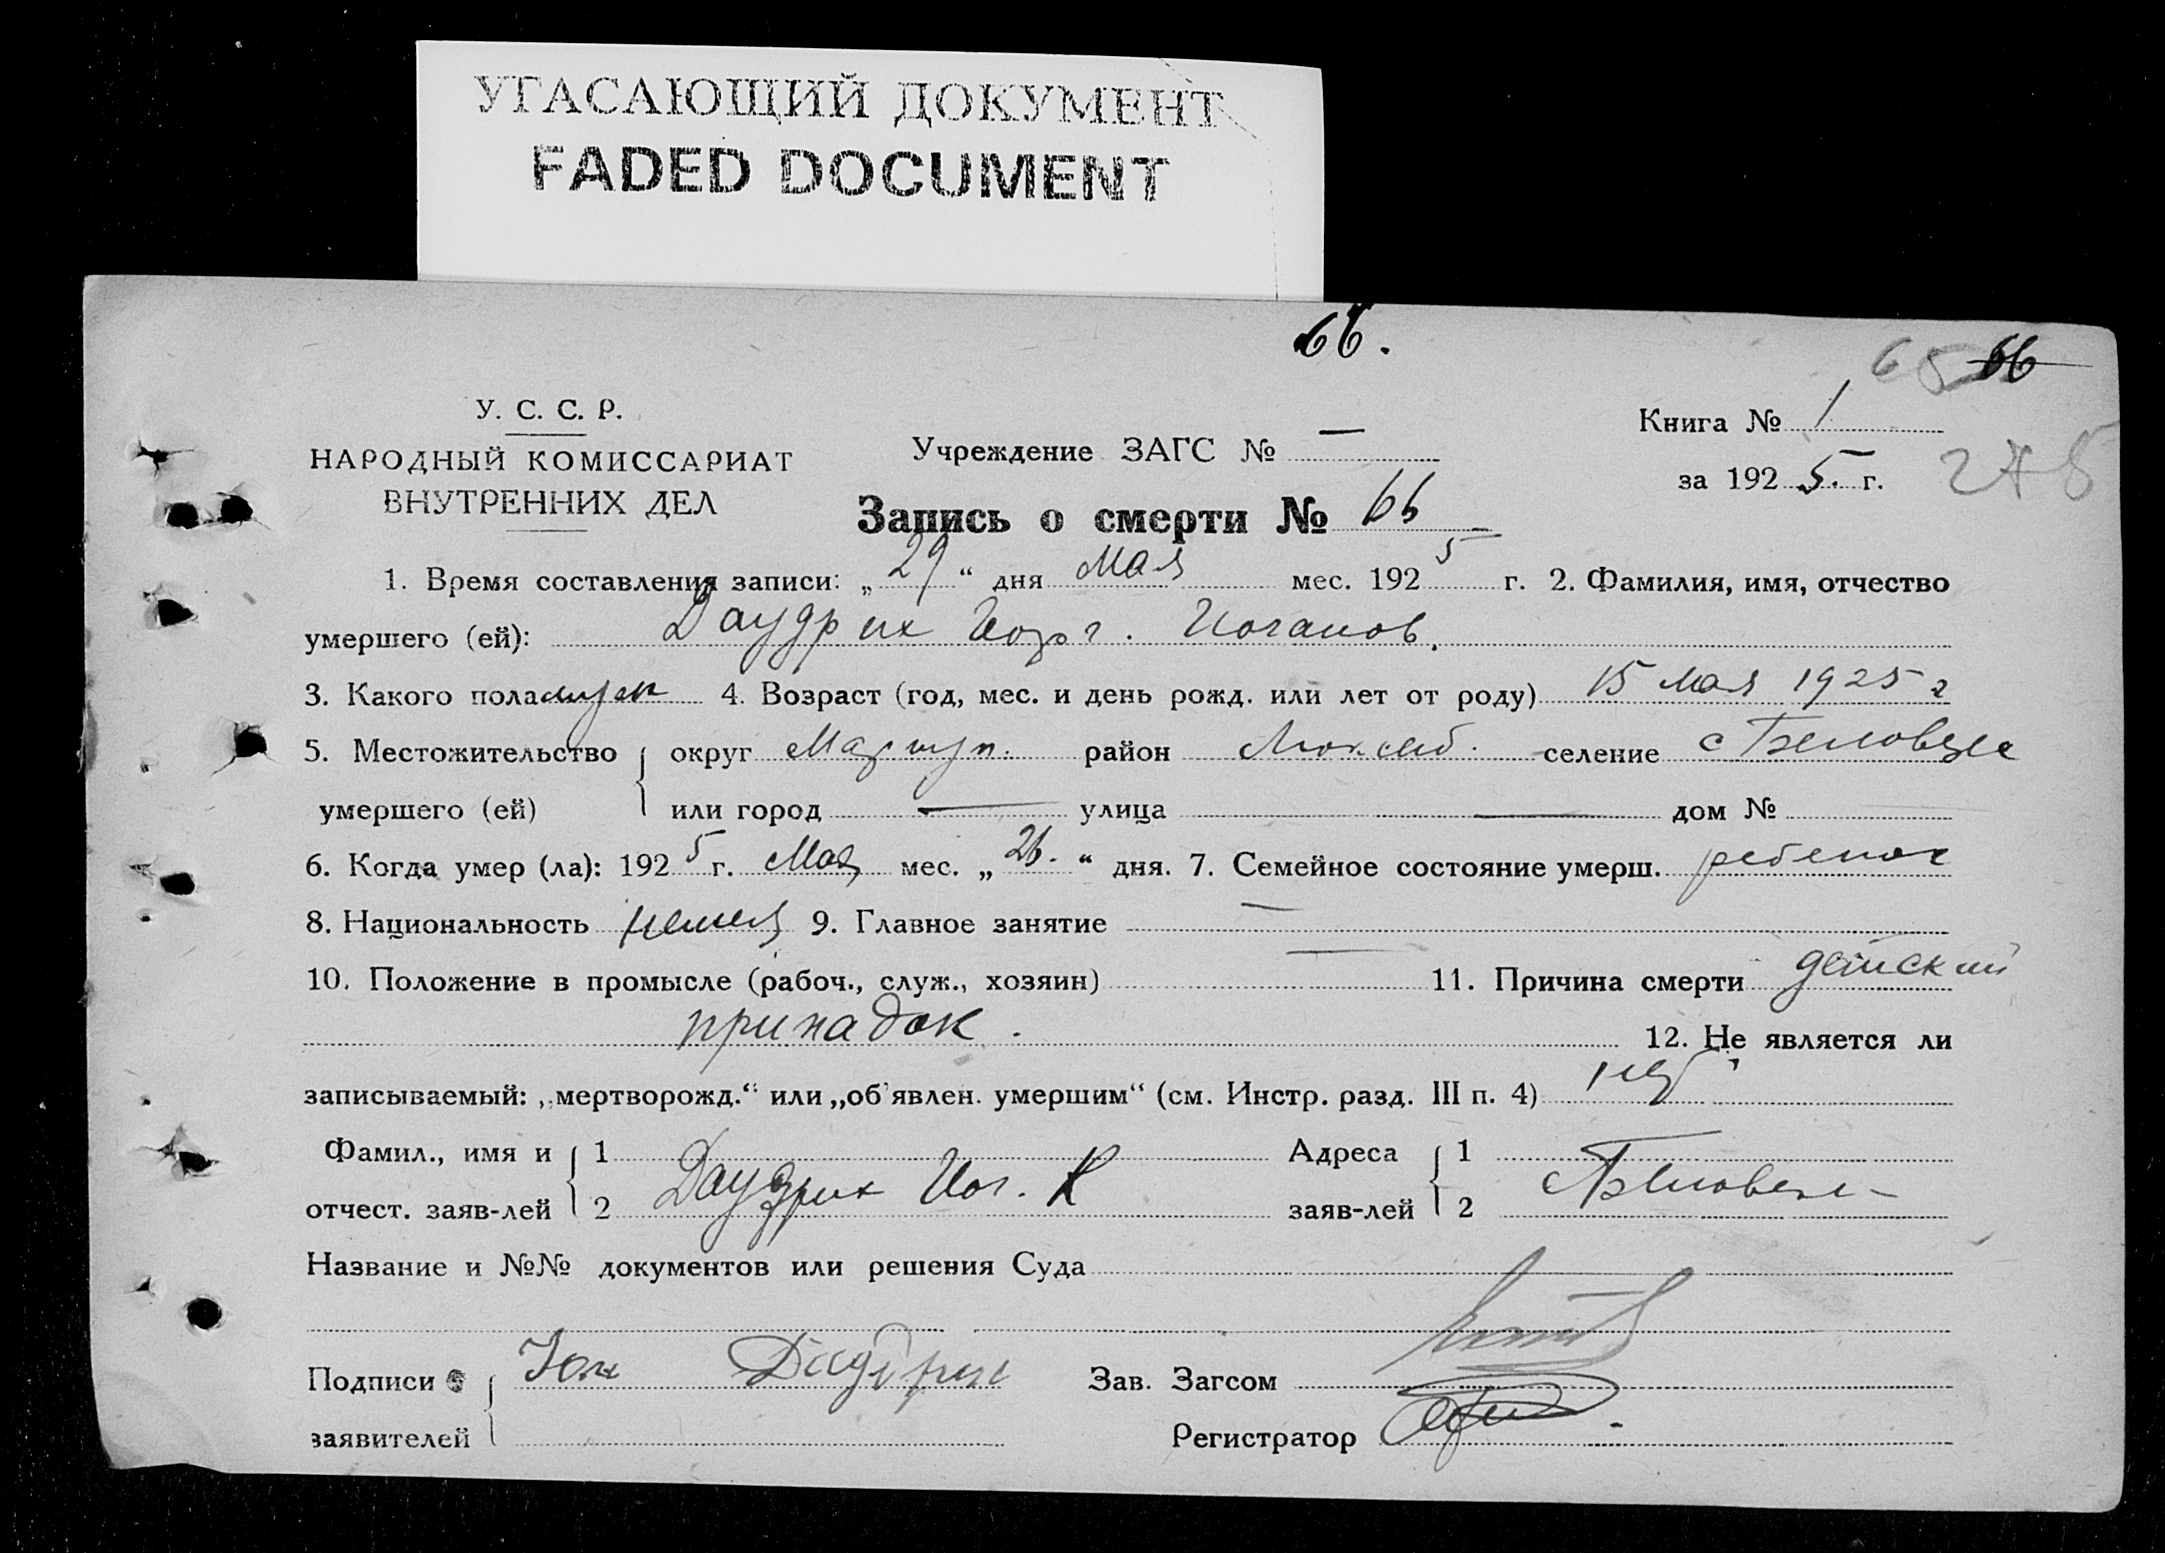 УГАСАЮЩИЙ ДОКУМЕНТ
FADED DOCUMENT
66.
65 66
У. С. С. Р.
НАРОДНЫЙ КОМИССАРИАТ
ВНУТРЕННИХ ДЕЛ
Учреждение ЗАГС № —
Книга № 1
за 192 5. г.
Запись о смерти № 66
1. Время составления записи: „ 29 “ дня мая мес. 192 5 г. 2. Фамилия, имя, отчество
умершего (ей): Даудрих Иоганов.
3. Какого пола мужск 4. Возраст (год, мес. и день рожд. или лет от роду) 15 мая 1925 г
5. Местожительство округ Мариуп. район Люксемб. селение с
умершего (ей) или город — улица — дом №
6. Когда умер (ла): 192 5 г. Мая мес. „ 26. “ дня. 7. Семейное состояние умерш. ребенок
8. Национальность немец 9. Главное занятие —
10. Положение в промысле (рабоч., служ., хозяин) — 11. Причина смерти детский
припадок.
12. Не является ли
записываемый: „мертворожд.“ или „об'явлен. умершим“ (см. Инстр. разд. III п. 4) нет
Фамил., имя и 1
отчест. заяв-лей 2 Даудрих Иог. К
Адреса 1
заяв-лей 2
Название и №№ документов или решения Суда
Подписи
заявителей
Зав. Загсом
Регистратор